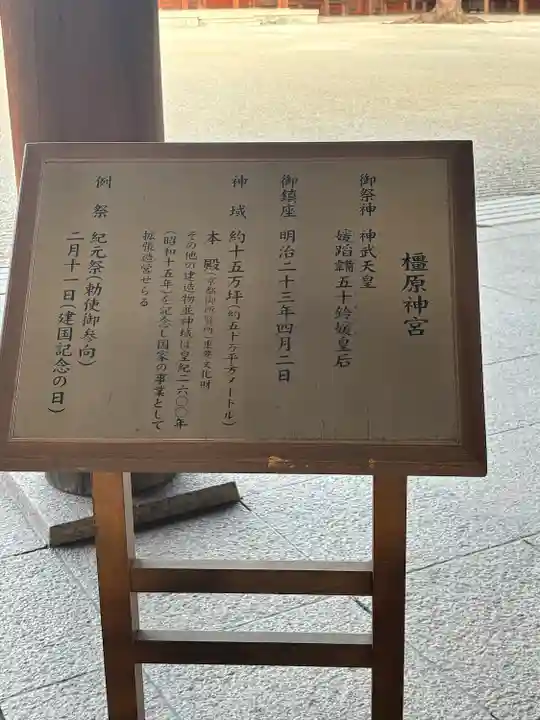 橿原神宮
御祭神 神武天皇
媛蹈鞴五十鈴媛皇后
御鎮座 明治二十三年四月二日
神域 約十五万坪(約五十万平方メートル)
本殿(京都御所賢所)重要文化財
その他の建造物並神域は皇紀二六〇〇年
(昭和十五年)を記念し国家の事業として
拡張造営せらる
例祭 紀元祭(勅使御参向)
二月十一日(建国記念の日)